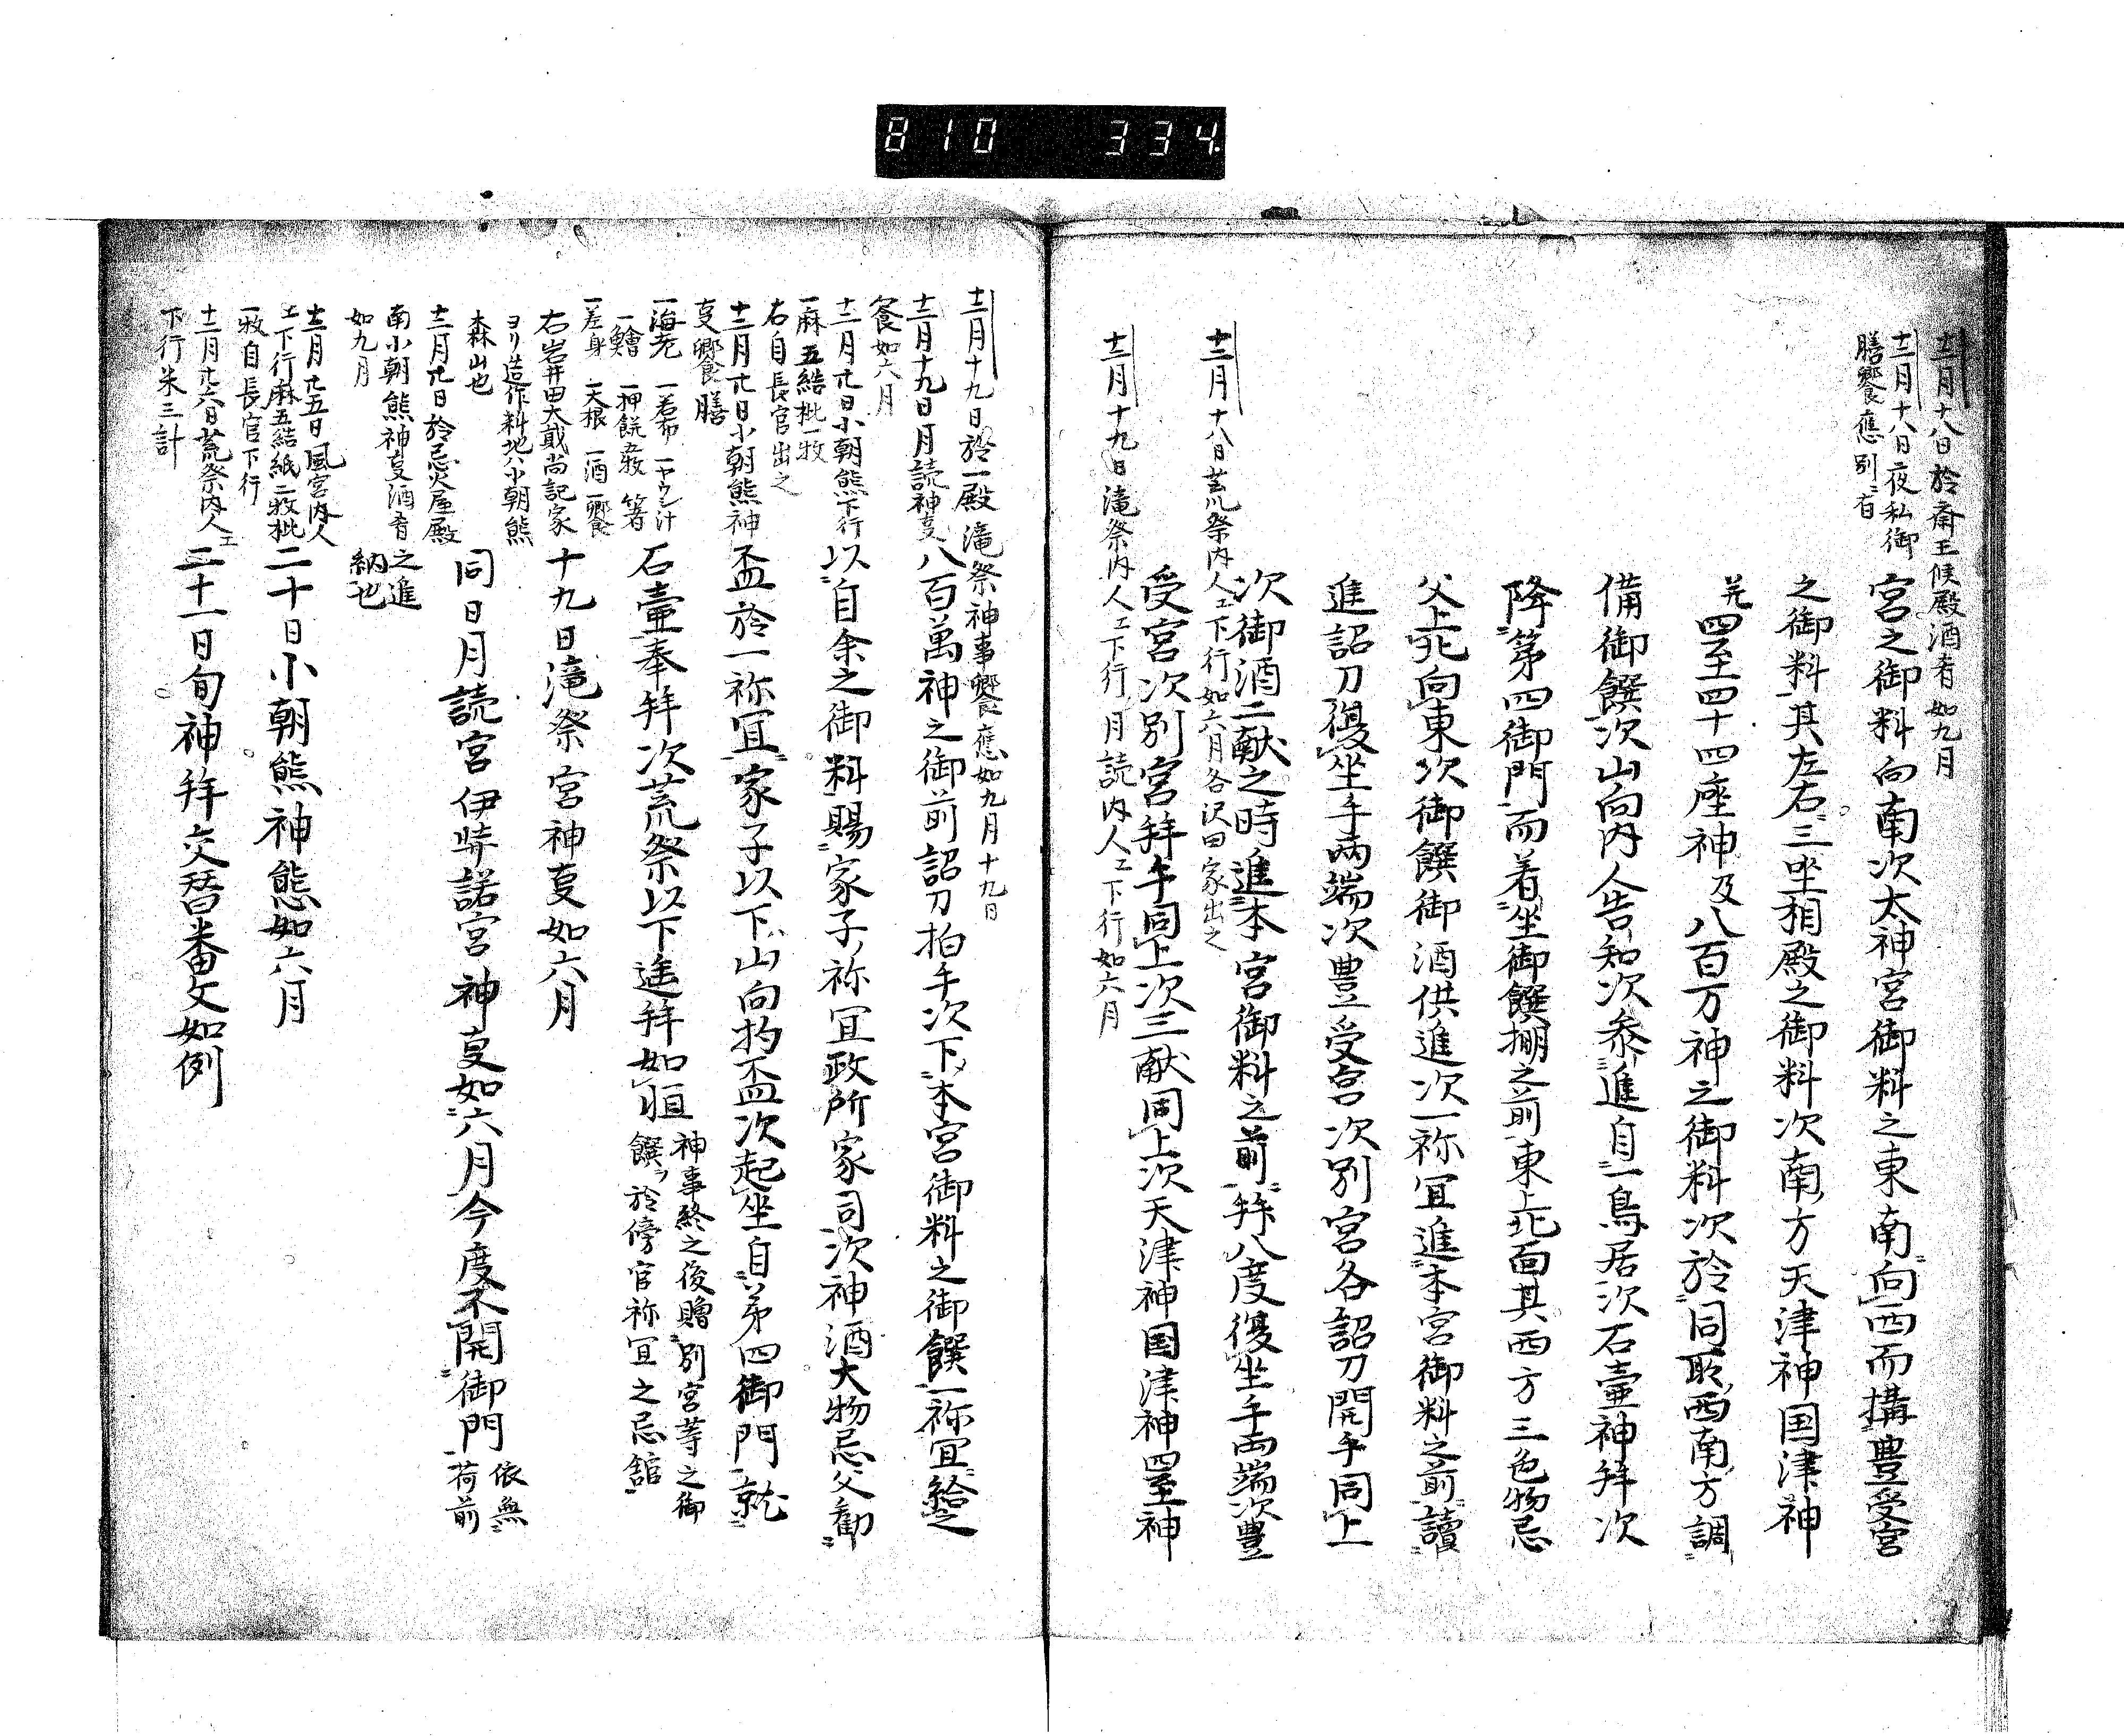 810 334
十二月十八日於斎王候殿酒肴如九月
十二月十八日夜私御
膳饗應別ニ有
宮之御料向南次太神宮御料之東南ニ向西而構豊受宮
之御料其左右ニ三坐相殿之御料次南方天津神国津神
四至四十四座神及八百万神之御料次於同取西南方調
備御饌次山向内人告知次参進自一鳥居次石壷神拜次
降第四御門而着坐御饌棚之前東上北面其西方三色物忌
父上北向東次御饌御酒供進次一祢宜進本宮御料之前讀
進詔刀復坐手両端次豊受宮次別宮各詔刀開手同上
十二月十八日荒祭内人工下行如六月各沢田家出之
次御酒二献之時進本宮御料之前拜八度復坐手両端次豊
受宮次別宮拜手同上次三献同上次天津神国津神四至神
十二月十九日滝祭内人工下行月読内人工下行如六月
十二月十九日於一殿滝祭神事饗應如九月十九日
十二月十九日月読神㕝
饗如六月
八百萬神之御前詔刀拍手次下本宮御料之御饌一祢宜給之
十二月廿日小朝熊下行
一麻五結批一枚
右自長官出之
以自余之御料賜家子祢宜政所家司次神酒大物忌父勧
十二月廿日小朝熊神
㕝饗膳
盃於一祢宜家子以下山向扚盃次起坐自第四御門就
一海老 一若布 一ヤウシ汁
一鱠 一神餅五枚 箸
石壷奉拜次荒祭以下遥拜如恒
神事終之後贈別宮等之御
饌ヲ於傍官祢宜之忌舘
一差身 一大根 一酒 一饗
右岩井田大貳尚記家
ヨリ造作料地ハ小朝熊
森山也
十九日滝祭宮神㕝如六月
十二月廿日於忌火屋殿
南小朝熊神㕝酒肴
如九月
同日月読宮伊弉諾宮神㕝如六月今度不開御門
依無荷前
之進
納也
十二月廿五日風宮内人
工下行麻五結紙二枚批
一枚自長官下行
二十日小朝熊神態如六月
十二月廿六日荒祭内人工
下行米三計
二十一日旬神拜交替番文如例